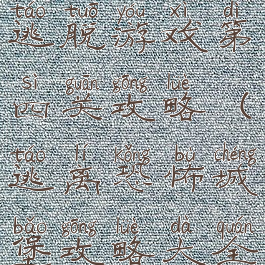 táo tuō yóu xì dì
逃脱游戏第
sì guān gōng lüè
四关攻略(
táo lí kǒng bù chéng
逃离恐怖城
bǎo gōng lüè dà quán
堡攻略大全